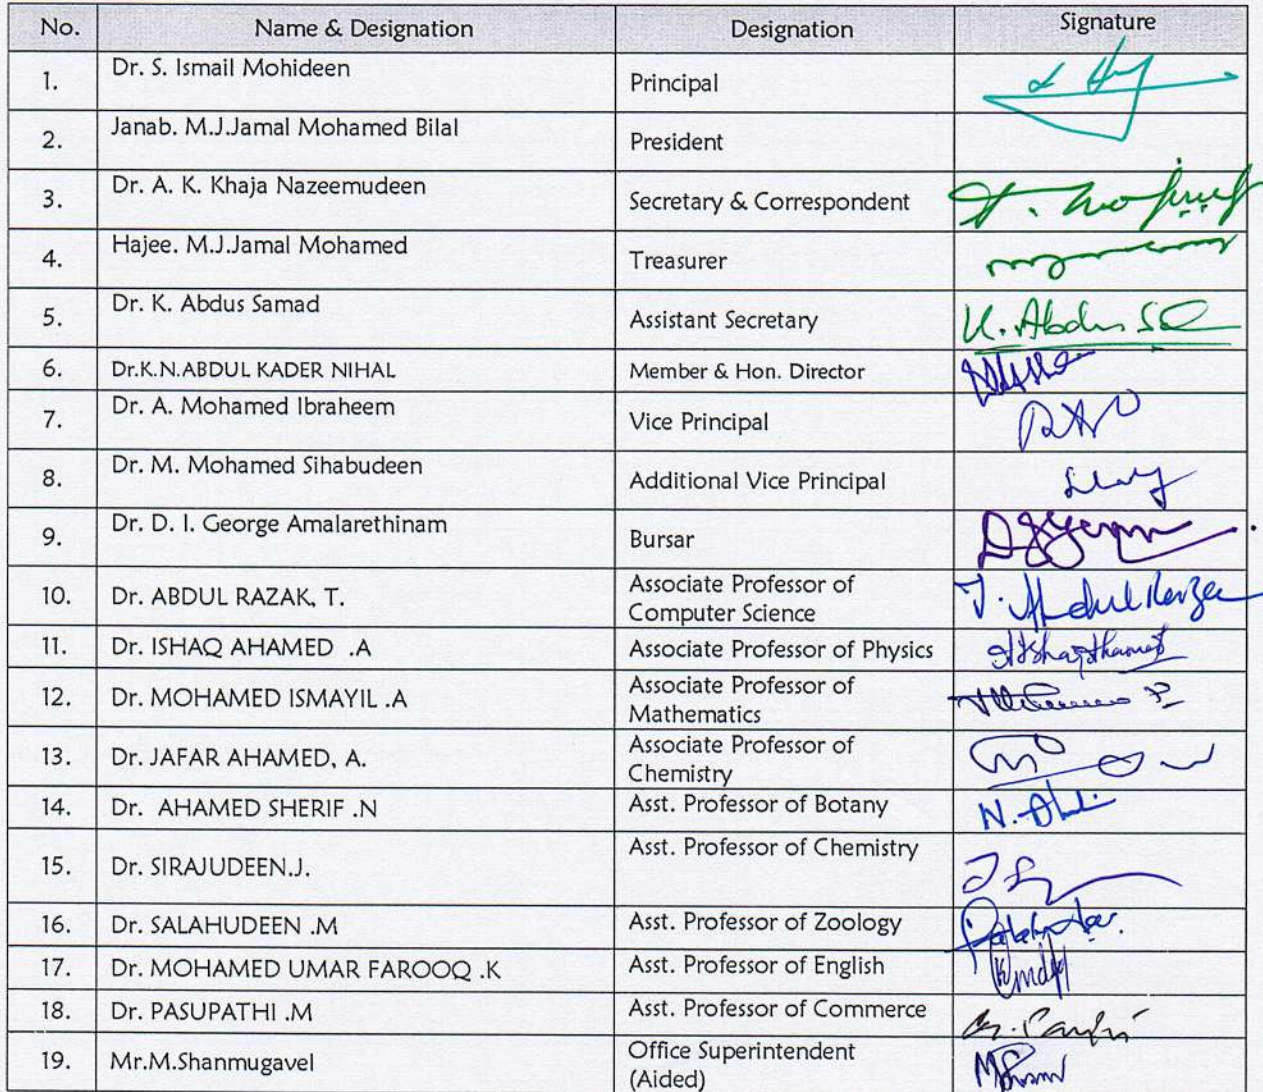 No. Name & Designation Designation Signature
1. Dr. S. Ismail Mohideen Principal
2. Janab. M.J.Jamal Mohamed Bilal President
3. Dr. A. K. Khaja Nazeemudeen Secretary & Correspondent
4. Hajee. M.J.Jamal Mohamed Treasurer
5. Dr. K. Abdus Samad Assistant Secretary K. Abdus
6. Dr.K.N.ABDUL KADER NIHAL Member & Hon. Director
7. Dr. A. Mohamed Ibraheem Vice Principal
8. Dr. M. Mohamed Sihabudeen Additional Vice Principal
9. Dr. D. I. George Amalarethinam Bursar
10. Dr. ABDUL RAZAK, T. Associate Professor of
Computer Science
11. Dr. ISHAQ AHAMED .A Associate Professor of Physics
12. Dr. MOHAMED ISMAYIL .A Associate Professor of
Mathematics
13. Dr. JAFAR AHAMED, A. Associate Professor of
Chemistry
14. Dr. AHAMED SHERIF .N Asst. Professor of Botany
15. Dr. SIRAJUDEEN.J. Asst. Professor of Chemistry
16. Dr. SALAHUDEEN .M Asst. Professor of Zoology
17. Dr. MOHAMED UMAR FAROOQ .K Asst. Professor of English
18. Dr. PASUPATHI .M Asst. Professor of Commerce
19. Mr.M.Shanmugavel Office Superintendent
(Aided)